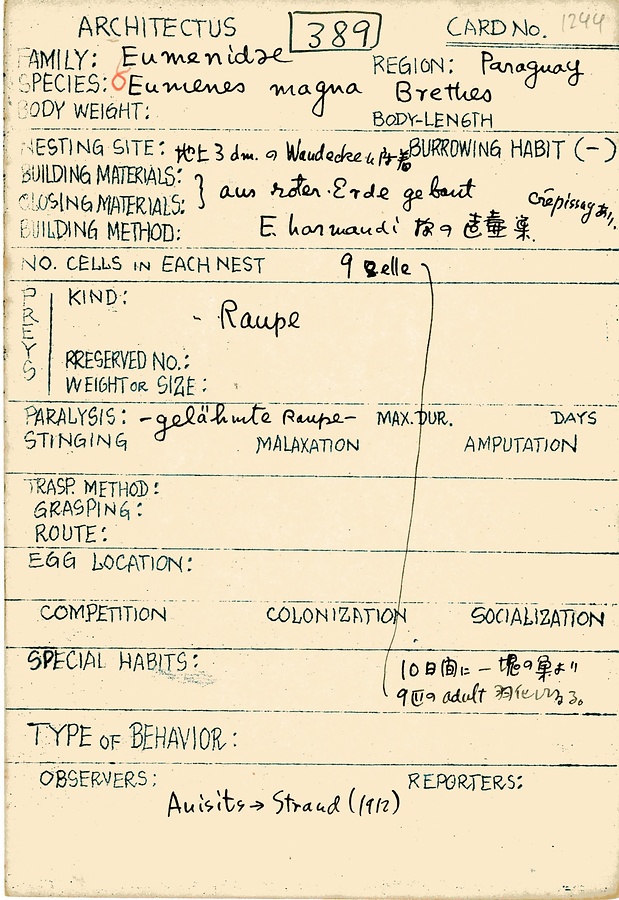 ARCHITECTUS 389 CARD No. 1244
FAMILY: Eumenidae
REGION: Paraguay
SPECIES: Eumenes magna Brethes
BODY WEIGHT: BODY-LENGTH
NESTING SITE: 地上3dm.の Wandecke に附着 BURROWING HABIT (-)
BUILDING MATERIALS:
CLOSING MATERIALS: } aus roter Erde gebaut crépissageあり.
BUILDING METHOD: E. harmandi 様の 壷巣.
NO. CELLS IN EACH NEST 9 Zelle
PREYS
KIND: - Raupe
PRESERVED NO.:
WEIGHT OR SIZE:
PARALYSIS: -gelähmte Raupe- MAX. DUR. DAYS
STINGING MALAXATION AMPUTATION
TRASP. METHOD:
GRASPING:
ROUTE:
EGG LOCATION:
COMPETITION COLONIZATION SOCIALIZATION
SPECIAL HABITS: 10日間に一塊の巣より
9匹の adult 羽化している。
TYPE OF BEHAVIOR:
OBSERVERS: REPORTERS:
Anisits → Strand (1912)